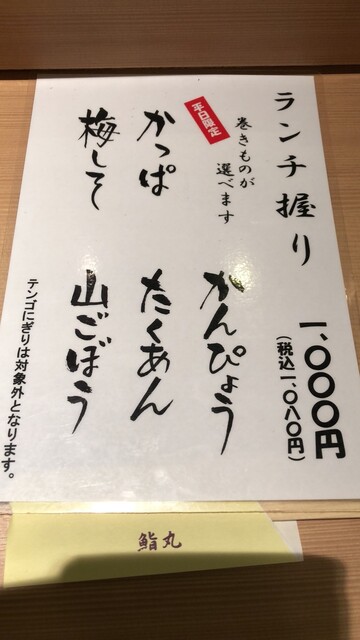 ランチ握り
一、〇〇〇円
(税込一、〇八〇円)
巻きものが
選べます
平日限定
かんぴょう
かっぱ
たくあん
梅しそ
山ごぼう
テンゴにぎりは対象外となります。
鮨丸